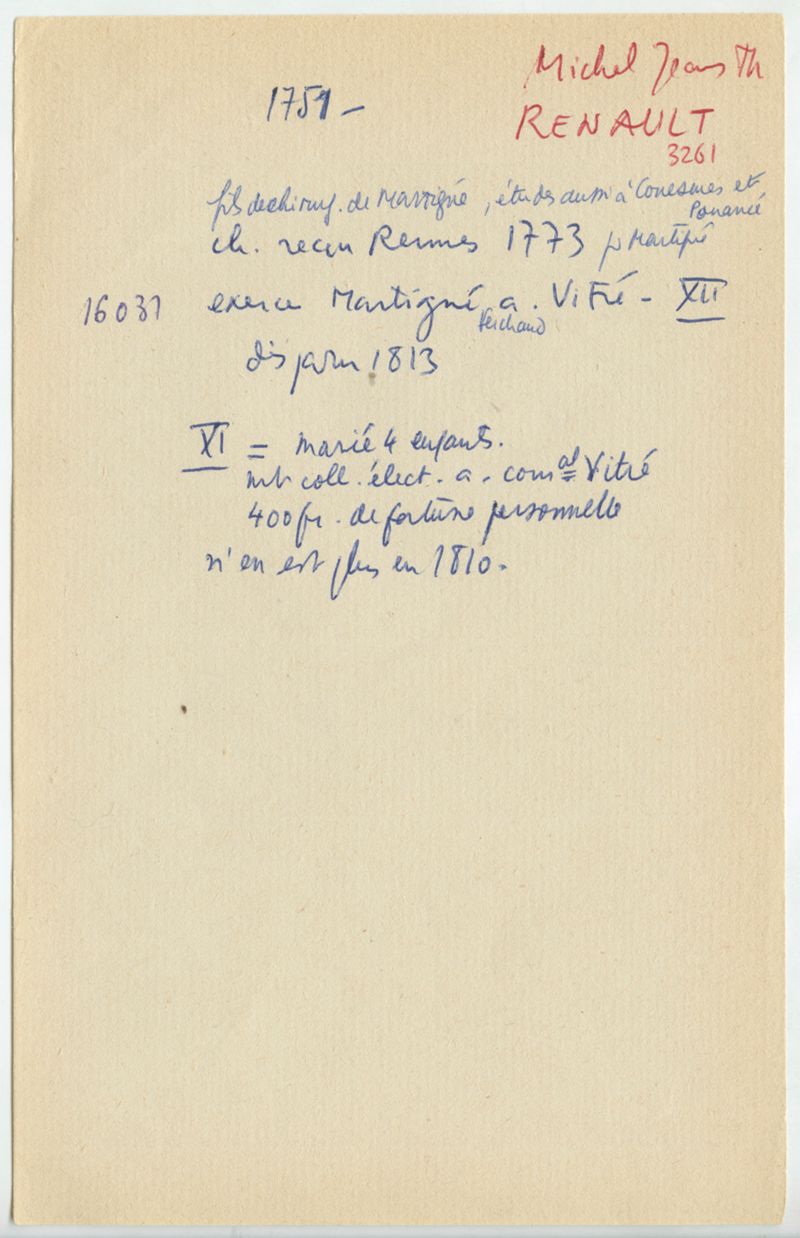 Michel Jean Th
RENAULT
3261
1751 -
fils de chirurg. de Martigné, études aussi à Couesmes et
Pouancé
ch. reçu Rennes 1773 pr Martigné
16031 exerce Martigné a. Vitré - XII
Ferchaud
1813
XI = marié 4 enfants.
mb coll. élect. a. com al Vitré
400 fr. de fortune personnelle
n'en est plus en 1810.